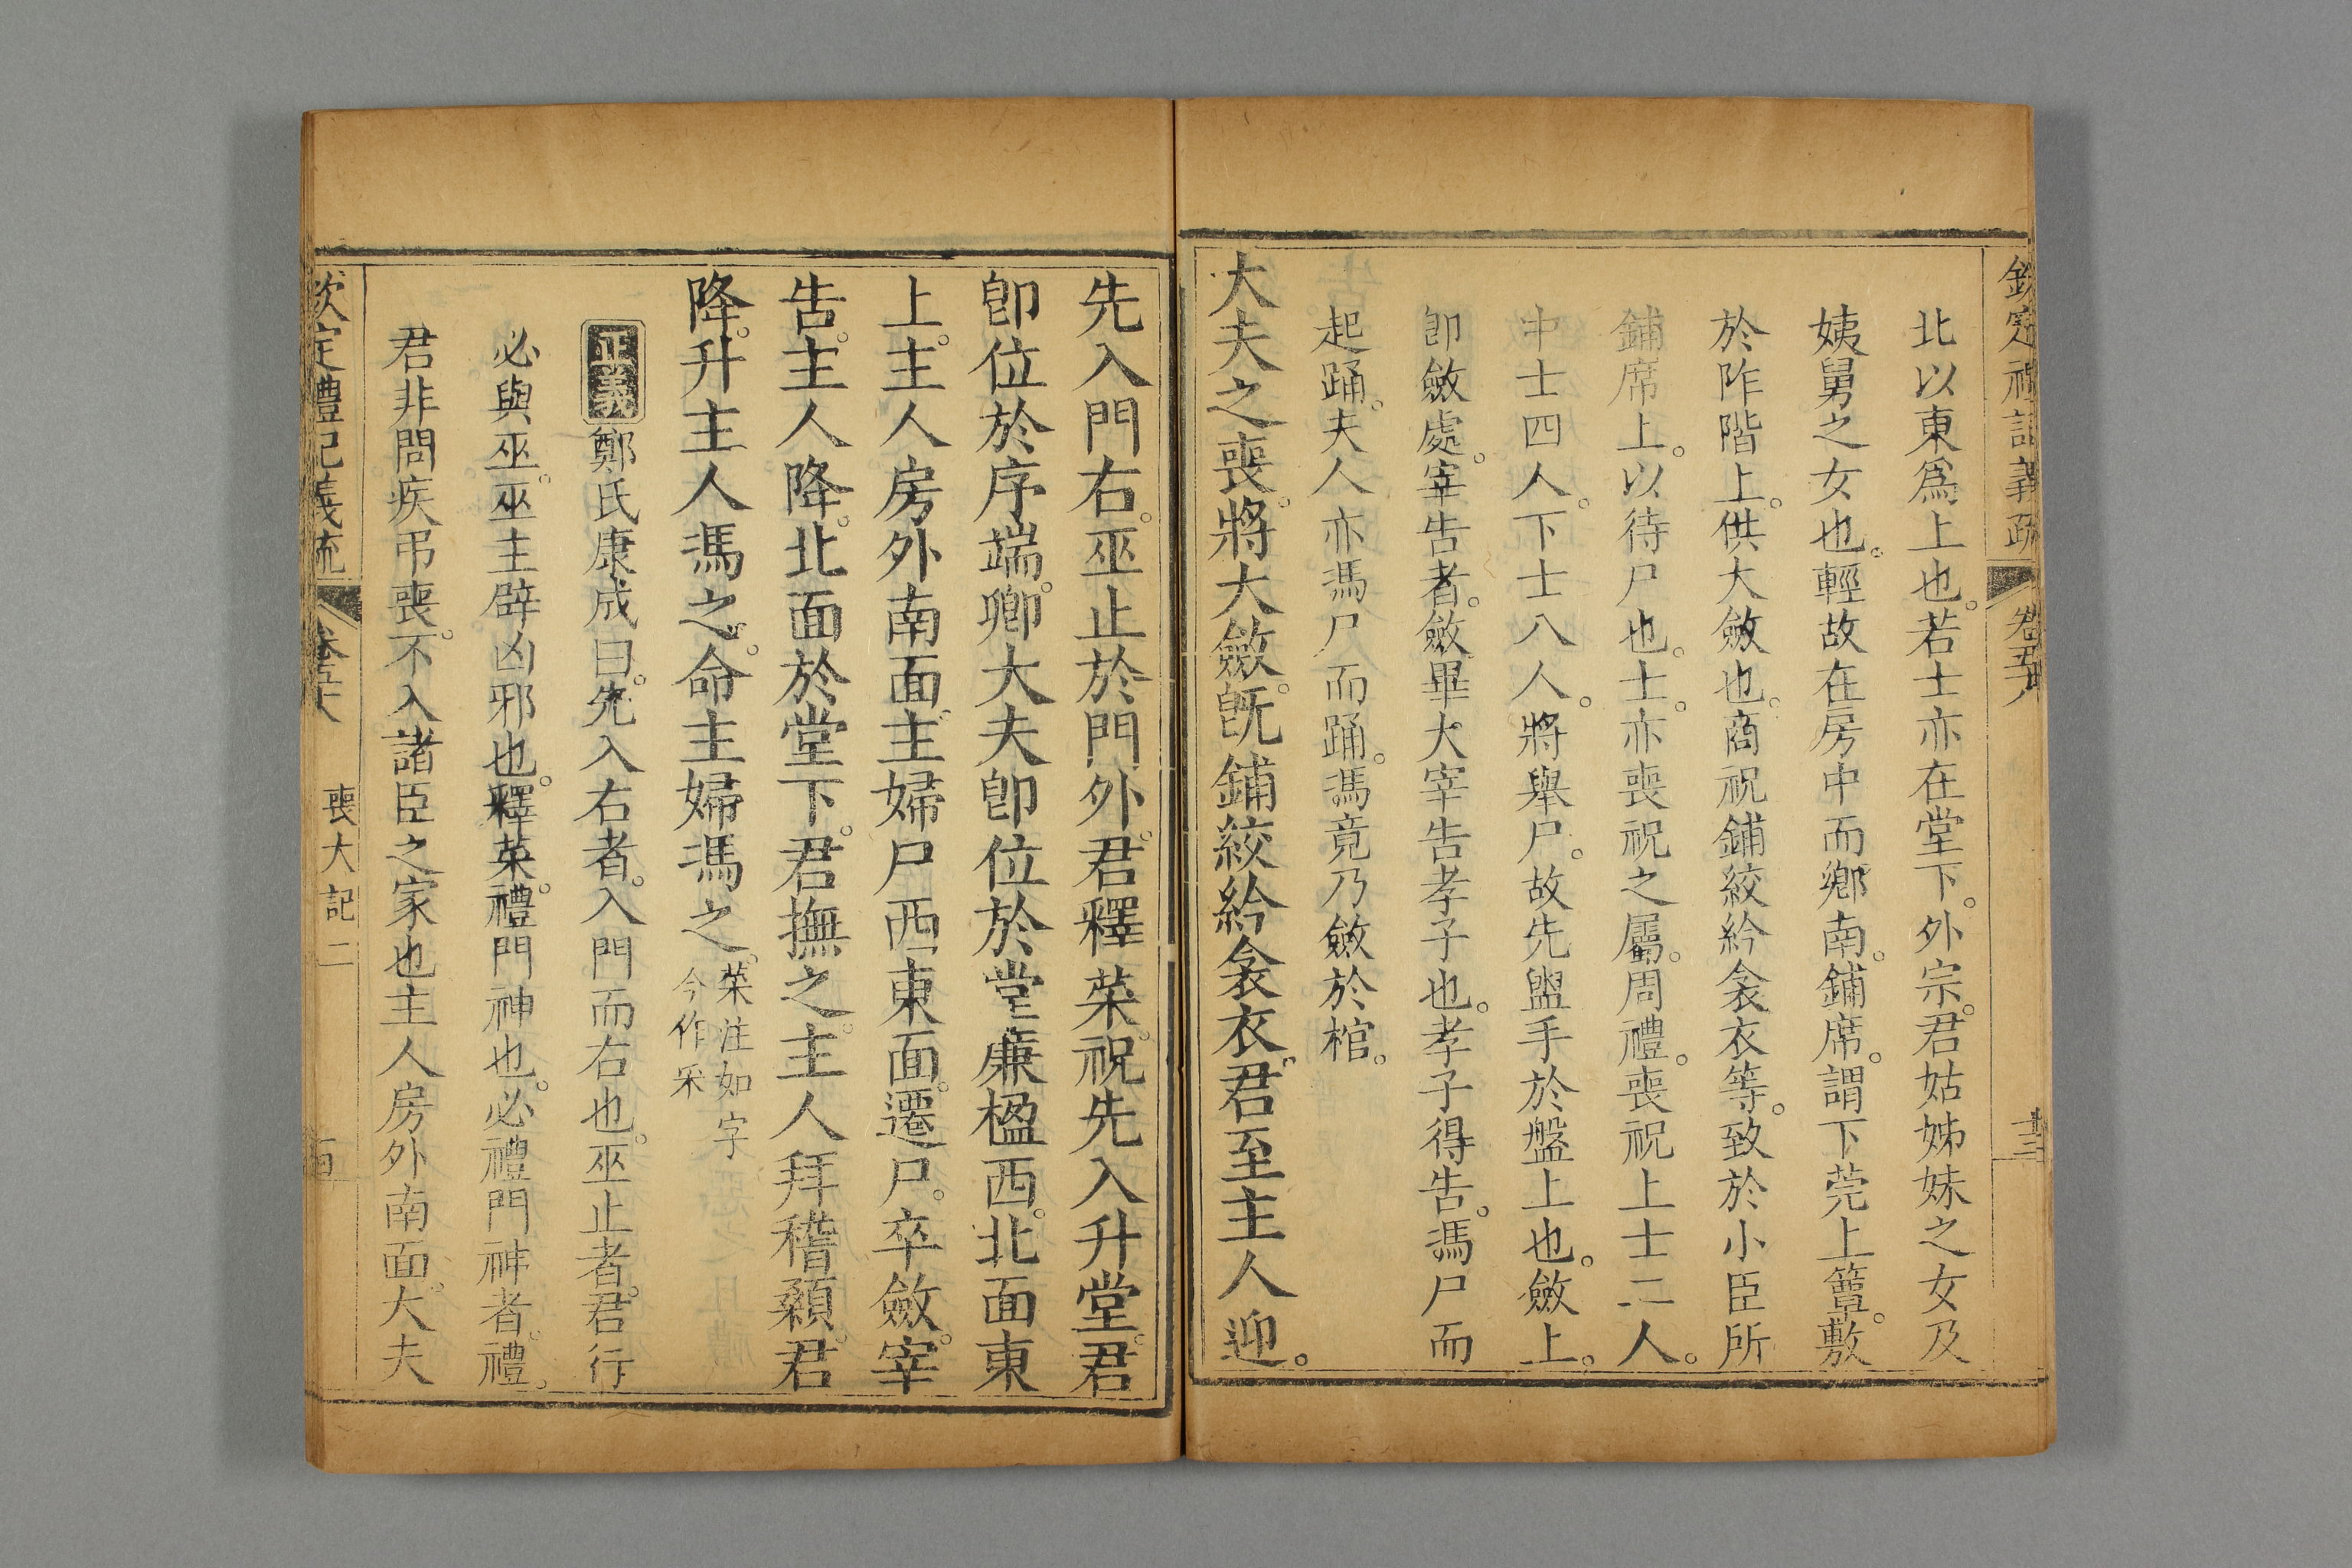 北以東爲上也。若士亦在堂下。外宗。君姑姊妹之女及
姨舅之女也。輕故在房中而鄉南。鋪席。謂下莞上簟。敷
於阼階上。供大斂也。商祝鋪絞紟衾衣等。致於小臣所
鋪席上。以待尸也。士。亦喪祝之屬。周禮。喪祝上士二人。
中士四人。下士八人。將舉尸。故先盥手於盤上也。斂上。
卽斂處。宰告者。斂畢大宰告孝子也。孝子得告。馮尸而
起踊。夫人亦馮尸而踊。馮竟乃斂於棺。
大夫之喪。將大斂。旣鋪絞紟衾衣。君至主人迎。
先入門右。巫止於門外。君釋菜。祝先入升堂。君
卽位於序端。卿大夫卽位於堂廉楹西。北面東
上。主人房外南面。主婦尸西東面。遷尸。卒斂。宰
告。主人降。北面於堂下。君撫之。主人拜稽顙。君
降。升主人馮之。命主婦馮之。菜注如字
今作采
正義 鄭氏康成曰。先入右者。入門而右也。巫止者。君行
必與巫。巫主辟凶邪也。釋菜。禮門神也。必禮門神者。禮。
君非問疾弔喪。不入諸臣之家也主人房外南面。大夫
欽定禮記義疏
喪大記二